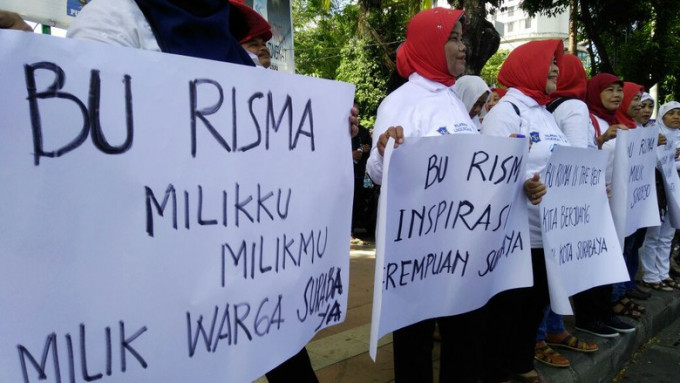 BU RISMA
MILIKKU
MILIKMU
MILIK WARGA SURABAYA
BU RISM
INSPIRASI
EREMPUAN SU
BU RISMA IS THE BEST
KITA BERJUANG
KOTA SURABAYA
BU RISMA
MILIK